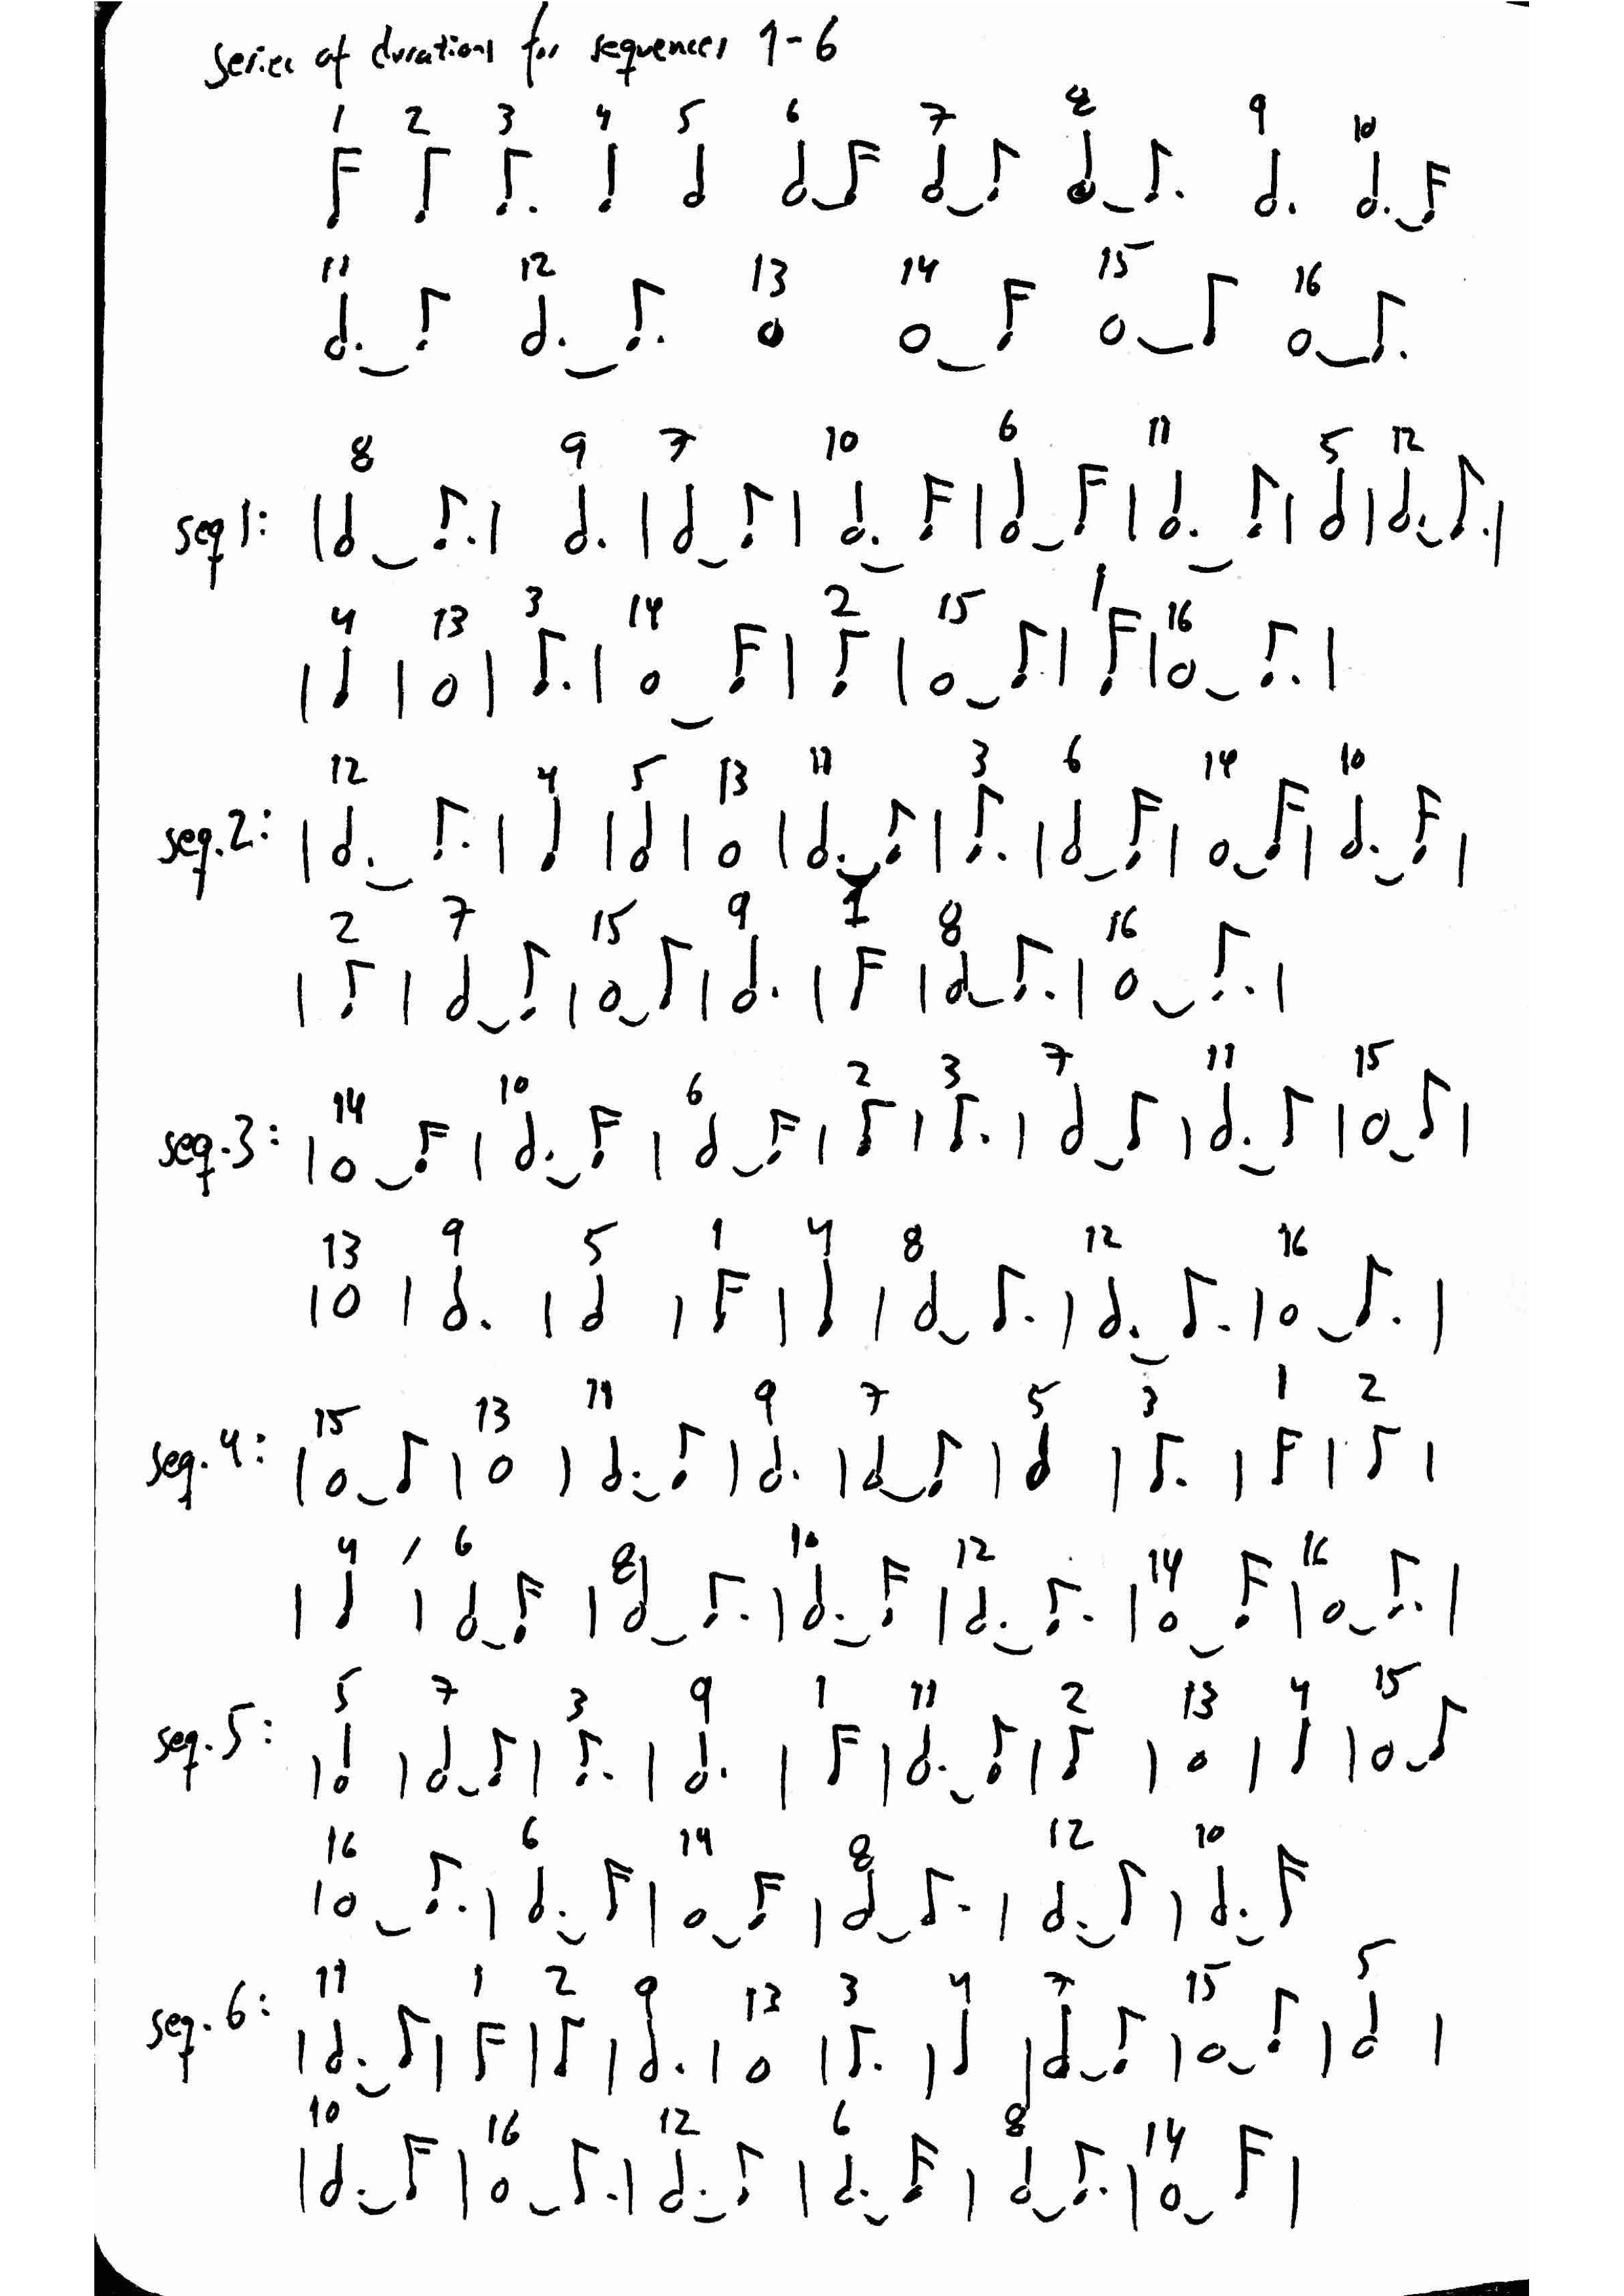 Series of durations for sequences 1-6
1 2 3 4 5 6 7 8 9 10
11 12 13 14 15 16
8 9 7 10 6 11 5 12
seq 1:
4 13 3 14 2 15 1 16
12 4 5 13 11 3 6 14 10
seq. 2:
2 7 15 9 1 8 16
14 10 6 2 3 7 11 15
seq. 3:
13 9 5 1 4 8 12 16
15 13 11 9 7 5 3 1 2
seq. 4:
4 6 8 10 12 14 16
5 7 3 9 1 11 2 13 4 15
seq. 5:
16 6 14 8 12 10
11 1 2 9 13 3 4 7 15 5
seq. 6:
10 16 12 6 8 14